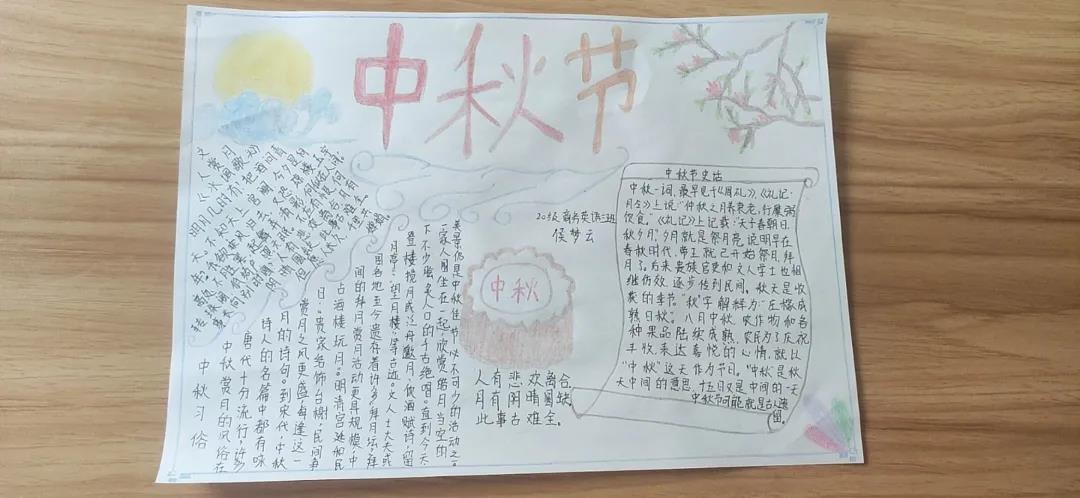 中秋节
文人赏月
《水调歌头》
明月几时有?把酒问青
天。不知天上宫阙,今夕是何
年。我欲乘风归去,又恐琼楼玉宇,
高处不胜寒。起舞弄清影,何似在人间。
转朱阁,低绮户,照无眠。
不应有恨,何事长向别时圆?
人有悲欢离合,月有
阴晴圆缺,此事古难全。
但愿人长久,千里共婵娟。
中秋习俗
中秋赏月的风俗在
唐代十分流行,许多
诗人的名篇中都有咏
月的诗句。到宋代,中秋
赏月之风更盛,每逢这一
日,"贵家结饰台榭,民间争
占酒楼玩月。明清宫廷和民
间的拜月赏月活动更具规模,中
国各地至今遗存着许多"拜月坛、拜
月亭"望月楼"等古迹。文人士大夫或
登楼揽月或泛舟邀月,饮酒赋诗,留
下不少脍炙人口的千古绝唱。直到今天
一家人围坐在一起,欣赏皓月当空的
美景仍是中秋佳节必不可少的活动之一
20级商务英语三班
侯梦云
中秋
人有悲欢离合
月有阴晴圆缺
此事古难全。
中秋节史话
中秋一词,最早见于《周礼》,《礼记·
月令》上说"仲秋之月养衰老,行糜粥
饮食。"《礼记》上记载"天子春朝日,
秋夕月。夕月就是祭月亮,说明早在
春秋时代,帝王就已开始祭月,拜
月了。后来贵族官吏和文人学士也相
继仿效,逐步传到民间。秋天是收
获的季节。"秋"字解释为"庄稼成
熟曰秋"。八月中秋,农作物和各
种果品陆续成熟,农民为了庆祝
丰收,表达喜悦的心情,就以
"中秋"这天作为节日。"中秋"是秋
天中间的意思,十五日又是中间的一天
中秋节可能就是古人遗
留。